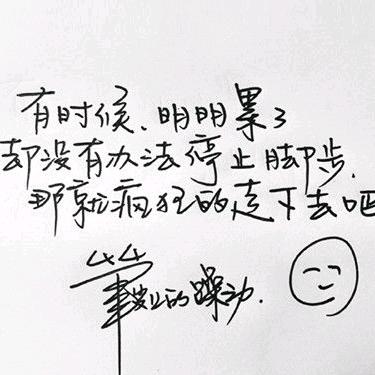 有时候、明明累了
却没有办法停止脚步.
那就疯狂的走下去吧
笔尖上的躁动.